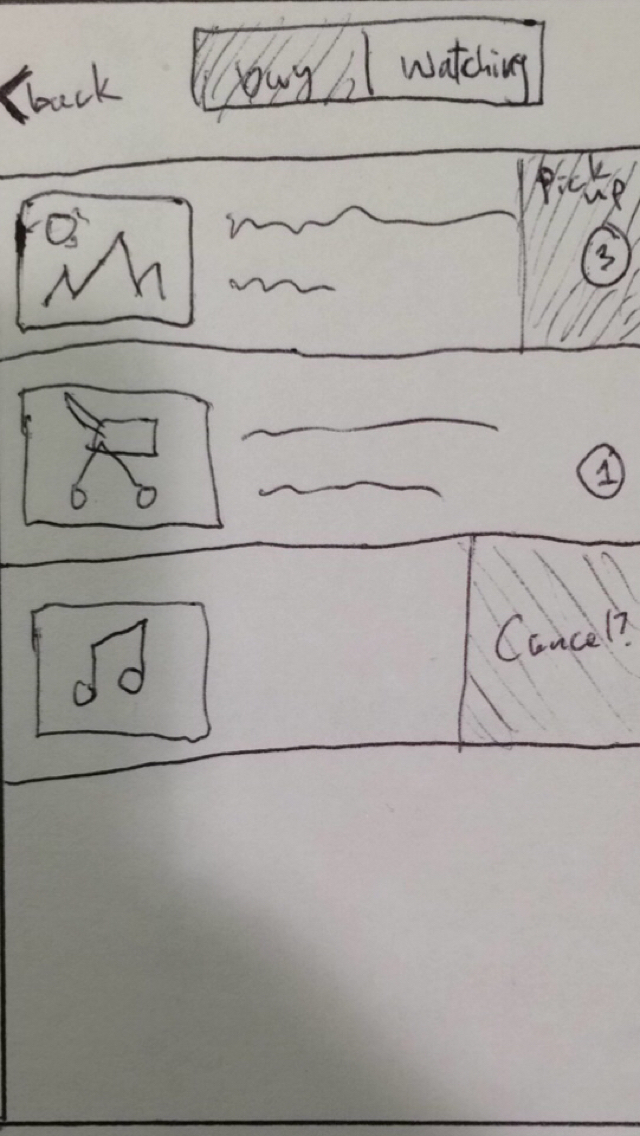 back
buy
watching
Pick
up
3
1
Cancel?